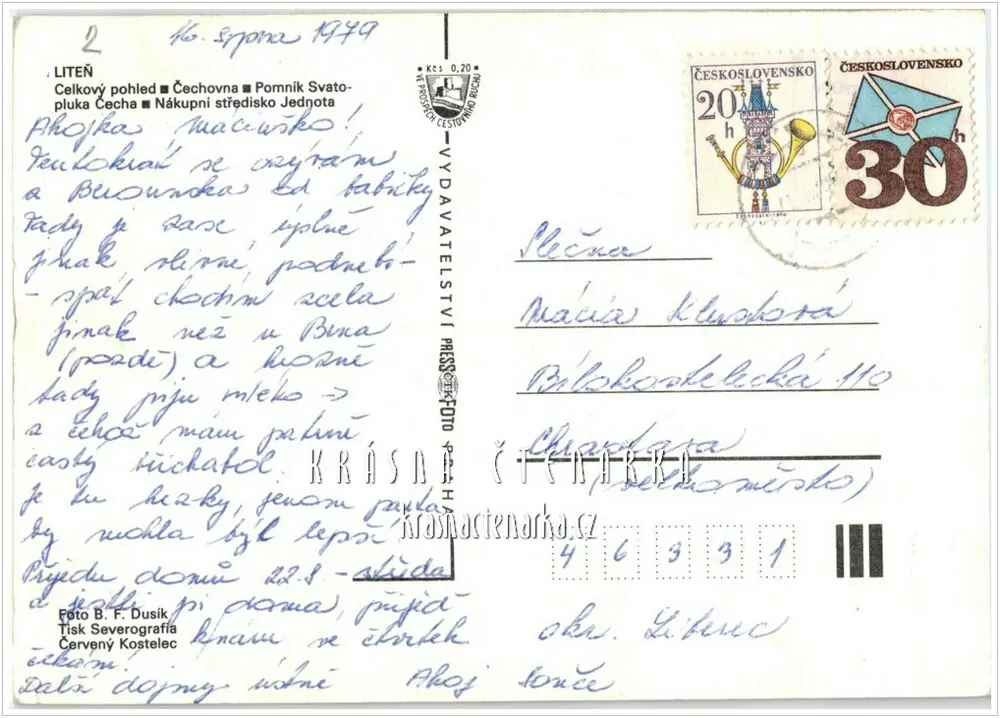 2
16. srpna 1979
LITEŇ
Celkový pohled ■ Čechovna ■ Pomník Svato-
pluka Čecha ■ Nákupní středisko Jednota
Ahojka Máciuško!
Tentokrát se ozývám
z Berounska od babičky
Tady je zase úplně
jinak, vlivné, podnebí -
- spát chodím zcela
jinak než u Brna
(pozdě) a hrozně
tady piju mléko →
z čehož mám patrně
častý břichabol.
Je tu hezky, jenom parta
by mohla být lepší
Přijedu domů 22.8. - středa
a jestli jsi doma, přijeď
k nám ve čtvrtek
čekám!
Další dojmy ústně Ahoj
Foto B. F. Dusík
Tisk Severografia
Červený Kostelec
• Kčs 0,20 •
VE PROSPĚCH CESTOVNÍHO RUCHU
VYDAVATELSTVÍ PRESSFOTO PRAHA
ČTK
ČESKOSLOVENSKO
20 h
ČESKOSLOVENSKO
30 h
Slečna
Mácia
Bílokostelecká 110
Chrastava
(velkoměsto)
46331
okr. Liberec
KRÁSNÁ ČTENÁŘKA
krasnactenarka.cz